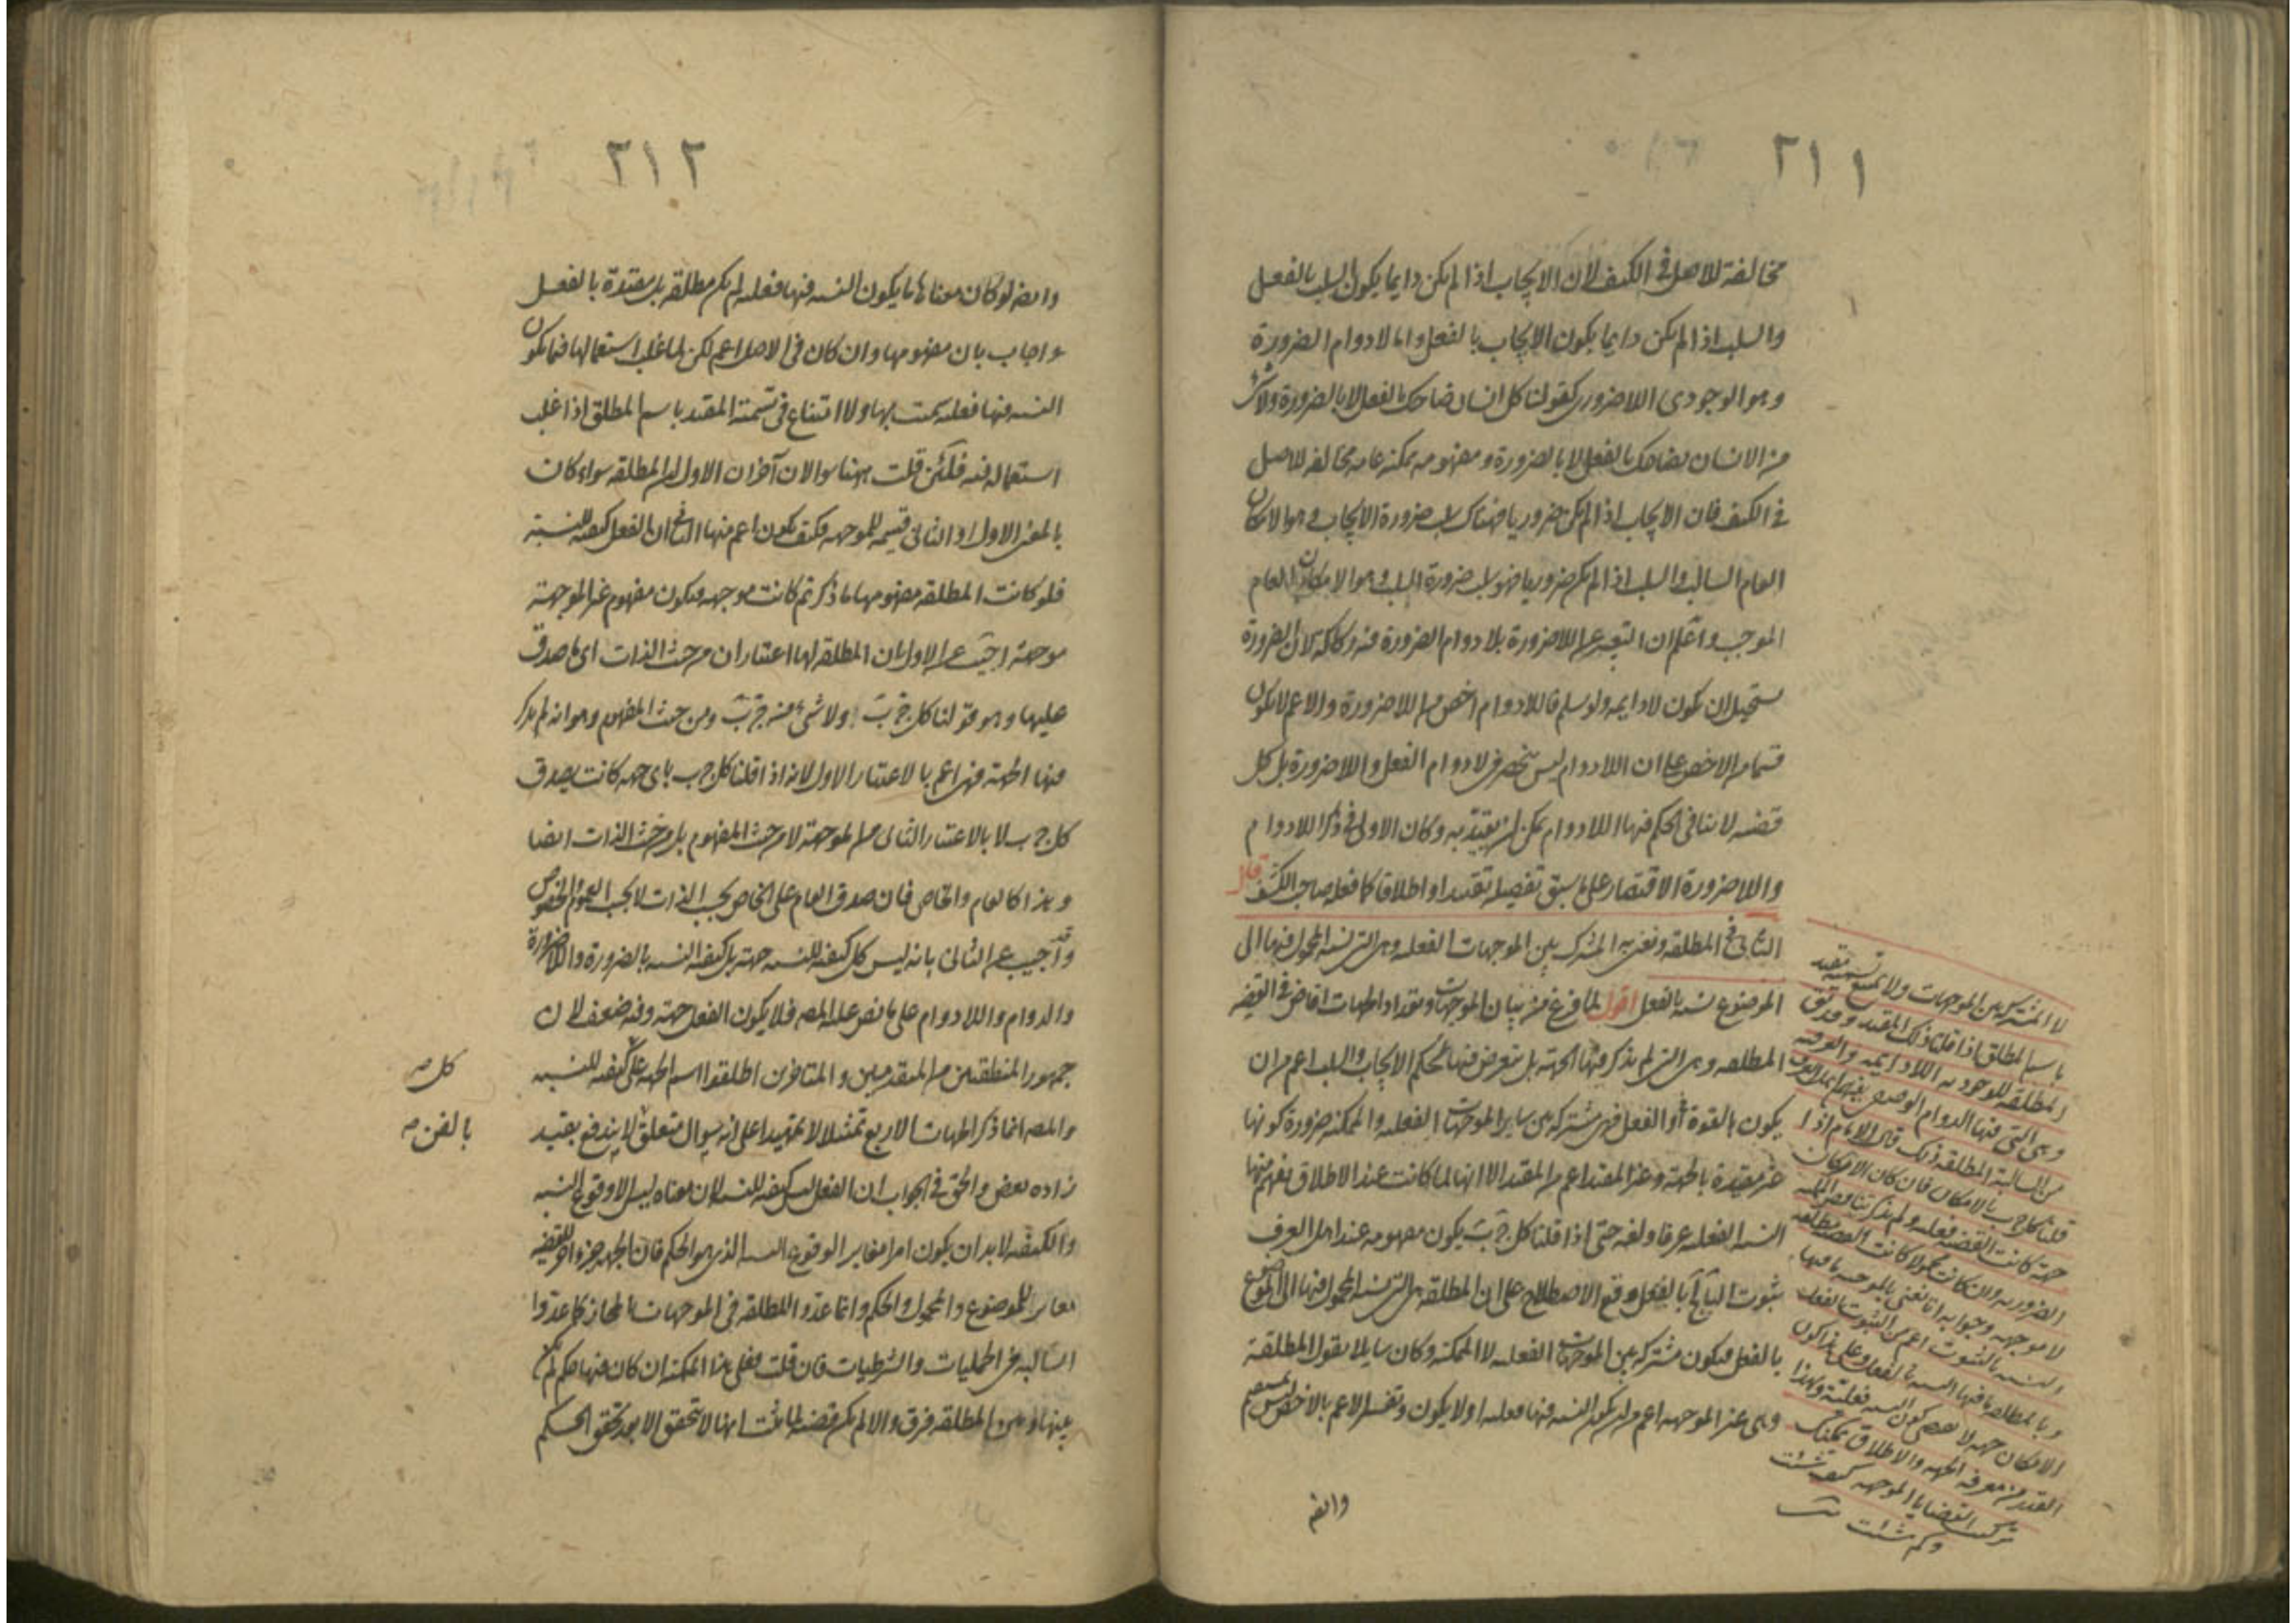 ٢١١
مخالفة للاصل فى الكيف لان الايجاب اذا لم يكن دايما يكون السلب بالفعل
والسلب اذا لم يكن دايما يكون الايجاب بالفعل واما لا دوام الضرورة
وهو الوجودى اللاضرورى كقولنا كل انسان ضاحك بالفعل لا بالضرورة ولا شئ
من الانسان بضاحك بالفعل لا بالضرورة ومفهومه ممكنة عامه مخالفه للاصل
فى الكيف فان الايجاب اذا لم يكن ضروريا فهناك سلب ضرورة الايجاب وهو الامكان
العام السالب والسلب اذا لم يكن ضروريا فهو سلب ضرورة السلب وهو الامكان العام
الموجب واعلم ان التعبير عن اللاضرورة بلا دوام الضرورة فيه ركاكة لان الضرورة
يستحيل ان يكون لا دايمه ولو سلم فاللادوام اخص من اللاضرورة والاعم لا يكون
قسما من الاخص على ان اللادوام ليس ينحصر فى لا دوام الفعل واللاضرورة بل كل
قضيه لا ينافى الحكم فيها اللادوام يمكن ان يقيد به وكان الاولى فى ذكر اللادوام
واللاضرورة الاقتصار على ما سبق تفصيله تقييدا واطلاقا كما فعله صاحب الكشف قال
الثانى فى المطلقه ونعنى به المشترك بين الموجهات الفعليه وهى التى نسبة المحمول فيها الى
الموضوع نسبه بالفعل اقول لما فرغ من بيان الموجهات وتعداد الجهات افاض فى القضيه
المطلقه وهى التى لم يذكر فيها الجهة بل يتعرض فيها لحكم الايجاب والسلب اعم من ان
يكون بالقوة او الفعل فهى مشتركه بين ساير الموجهات الفعليه والممكنه ضرورة كونها
غير مقيدة بالجهة وغير المقيد اعم من المقيد الا انها لما كانت عند الاطلاق يفهم منها
النسبة الفعليه عرفا ولغه حتى اذا قلنا كل ج ب يكون مفهومه عند اهل العرف
ثبوت الباء بالفعل وقع الاصطلاح على ان المطلقه هى التى نسبة المحمول فيها الى الموضوع
بالفعل فيكون مشتركه بين الموجهات الفعليه لا الممكنه وكان سايلا يقول المطلقة
وهى غير الموجهه اعم من ان يكون النسبه فيها فعليه او لا يكون وتفسير الاعم بالاخص ليس بمستقيم
وايضا
لا المشترك بين الموجهات ولا يمتنع تسمية مقيد
باسم المطلق اذا قلنا ذلك المقيد وقد يق
المطلقه للوجوديه اللادايمه والعرفيه
وهى التى فيها الدوام الوصفى
من السالبة المطلقه ذلك قال الامام اذا
قلنا كل ج ب بالامكان فان كان الامكان
جهة كانت القضيه فعليه
الضروريه وان كانت محمولا كانت القضيه مطلقه
لا موجهه وجوابه انا نعنى بالموجهه ما فيها
النسبه بالثبوت اعم من الثبوت بالفعل
وبالمطلقه ما فيها النسبه بالفعل وعلى هذا كون
الامكان جهه لا يقتضى كون النسبه فعليه وبهذا
القدر من معرفه الجهه والاطلاق يمكنك
تركيب القضايا الموجهه كيف شئت
وكم شئت
٢١٢
وايضا لو كان معناها ما يكون النسبه فيها فعليه لم يكن مطلقه بل مقيدة بالفعل
واجاب بان مفهومها وان كان فى الاصل اعم لكن لما غلب استعمالها فيما يكون
النسبه فيها فعليه سميت بها ولا امتناع فى تسمية المقيد باسم المطلق اذا غلب
استعماله فيه فلئن قلت ههنا سوالان آخران الاول ان المطلقه سواء كان
بالمعنى الاول او الثانى قسيمه للموجهه فكيف يكون اعم منها الثانى ان الفعل كيفيه للنسبة
فلو كانت المطلقه مفهومها ما ذكرتم كانت موجهه فيكون مفهوم غير الموجهة
موجهة اجيب عن الاول بان المطلقه لها اعتباران من حيث الذات اى ما صدق
عليها وهو قولنا كل ج ب او لا شئ من ج ب ومن حيث المفهوم وهو انه لم يذكر
فيها الجهة فهى اعم بالاعتبار الاول لانه اذا قلنا كل ج ب باى جهه كانت يصدق
كل ج ب لا بالاعتبار الثانى من الموجهة لا من حيث المفهوم بل من حيث الذات ايضا
وهذا كالعام والخاص فان صدق العام على الخاص بحسب الذات لا بحسب العموم والخصوص
وقد اجيب عن الثانى بانه ليس كل كيفيه للنسبه جهة بل كيفية النسبه بالضرورة واللاضرورة
والدوام واللادوام على ما نص عليه المص فلا يكون الفعل جهة وفيه ضعف لان
جمهور المنطقيين من المتقدمين والمتاخرين اطلقوا اسم الجهه على كيفيه للنسبه
كل صه
والمص انما ذكر الجهات الاربع تمثيلا لا تقييدا على انه سوال متعلق لا يندفع بقيد
بالفن صه
زاده بعض والحق فى الجواب ان الفعل ليس كيفيه للنسبه لان معناه ليس الا وقوع النسبه
والكيفيه لا بد ان يكون امرا مغايرا لوقوع النسبه الذى هو الحكم فان الجهه جزء آخر للقضيه
مغاير للموضوع والمحمول والحكم وانما عدوا المطلقه فى الموجهات بالمجاز كما عدوا
السالبه فى الحمليات والشرطيات فان قلت فعلى هذا الممكنه ان كان فيها حكم لم يكن
بينها وبين المطلقه فرق والا لم يكن قضيه لما ثبت انها لا تتحقق الا بعد تحقق الحكم